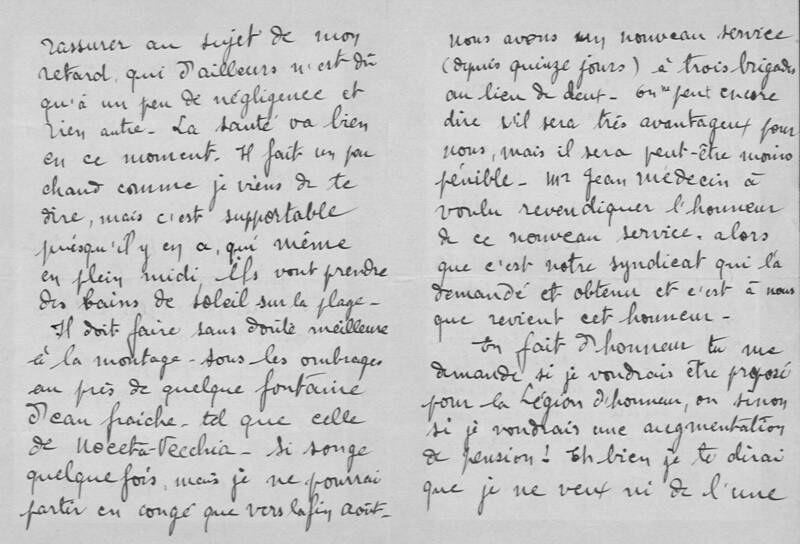 rassurer au sujet de mon
retard, qui d'ailleurs n'est dû
qu'à un peu de négligence et
rien autre - La santé va bien
en ce moment. Il fait un peu
chaud comme je viens de te
dire, mais c'est supportable
puisqu'il y en a, qui même
en plein midi, ils vont prendre
des bains de soleil sur la plage -
Il doit faire sans doute meilleure
à la montage - sous les ombrages
au près de quelque fontaine
d'eau fraiche - tel que celle
de Noceta-Vecchia - Si songe
quelque fois, mais je ne pourrai
partir en congé que vers la fin août -
nous avons un nouveau service
(depuis quinze jours) à trois brigades
au lieu de deux - On ne peut encore
dire s'il sera très avantageux pour
nous, mais il sera peut-être moins
pénible - Mr Jean Médecin à
voulu revendiquer l'honneur
de ce nouveau service - alors
que c'est notre syndicat qui l'a
demandé et obtenu et c'est à nous
que revient cet honneur -
En fait d'honneur tu me
demande si je voudrais être proposé
pour la Légion d'honneur, ou sinon
si je voudrais une augmentation
de pension ! Eh bien je te dirai
que je ne veux ni de l'une